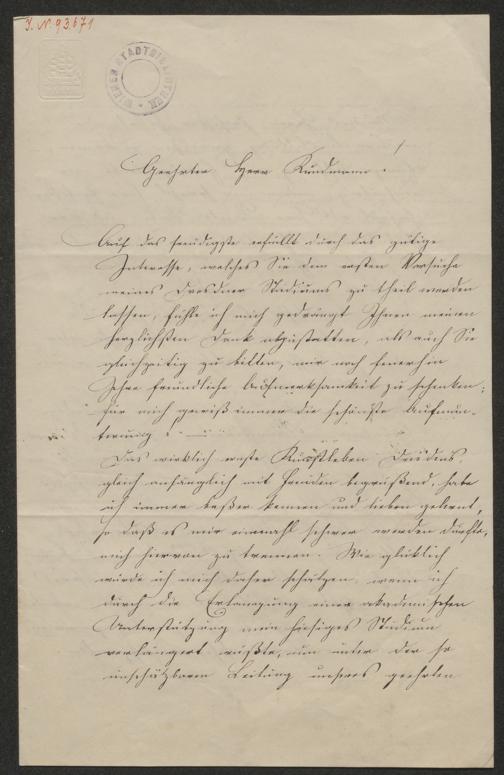 J. N. 93671
WIENER STADTBIBLIOTHEK
Geehrter Herr Kundmann!
Auf das freudigste erfüllt durch das gütige
Interesse, welches Sie dem ersten Versuche
meines Dresdner Studiums zu theil werden
lassen, fühle ich mich gedrängt Ihnen meinen
herzlichsten Dank abzustatten, als auch Sie
gleichzeitig zu bitten, mir noch fernerhin
Ihre freundliche Aufmerksamkeit zu schenken;
für mich gewiß immer die schönste Aufmun-
terung. —
Das wirklich ernste Kunstleben Dresdens
gleich anfänglich mit Freuden begrüßend, habe
ich immer beßer kennen und lieben gelernt,
so daß es mir einmahl schwer werden dürfte,
mich hiervon zu trennen. Wie glücklich
würde ich mich daher schätzen, wenn ich
durch die Erlangung einer akademischen
Unterstützung mein hiesiges Studium
verlängert wüßte, um unter der so
unschätzbaren Leitung unseres geehrten